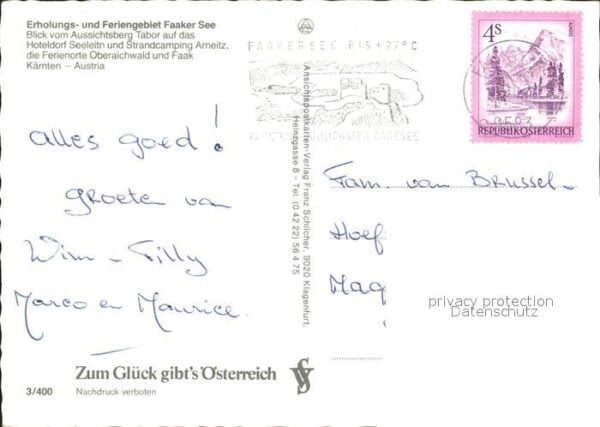 Erholungs- und Feriengebiet Faaker See
Blick vom Aussichtsberg Tabor auf das
Hoteldorf Seeleitn und Strandcamping Arneitz,
die Ferienorte Oberaichwald und Faak
Kärnten – Austria
FAAKERSEE BIS +27°C
4S
REPUBLIK ÖSTERREICH
Alles goed!
Groeten van
Wim - Tilly
Marco en Maurice.
Ansichtspostkarten-Verlag Franz Schilcher, 9020 Klagenfurt,
Heinzgasse 8 - Tel. (0 42 22) 56 4 75
Fam. van Brussel
Hoef
Maq
privacy protection
Datenschutz
Zum Glück gibt's Österreich
3/400
Nachdruck verboten